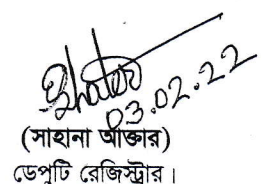 03.02.22
(সাহানা আক্তার)
ডেপুটি রেজিস্ট্রার।